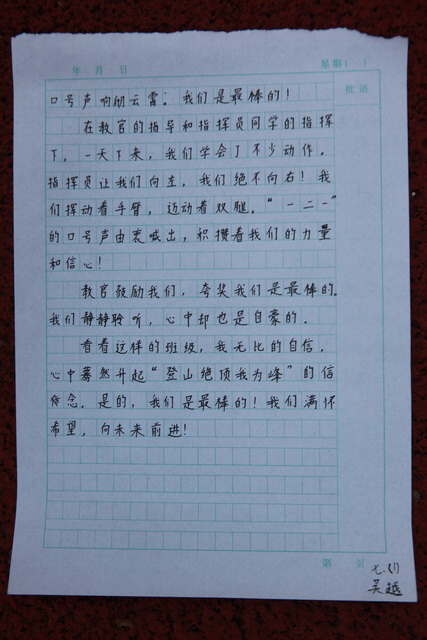 年 月 日 星期( )
批语
口号声响彻云霄：我们是最棒的！
在教官的指导和指挥员同学的指挥
下，一天下来，我们学会了不少动作。
指挥员让我们向左，我们绝不向右！我
们挥动着手臂，迈动着双腿，“一二一”
的口号声由衷喊出，积攒着我们的力量
和信心！
教官鼓励我们，夸奖我们是最棒的。
我们静静聆听，心中却也是自豪的。
看看这样的班级，我无比的自信。
心中蓦然升起“登山绝顶我为峰”的信
念。是的，我们是最棒的！我们满怀
希望，向未来前进！
第 页
七.(1)
吴越